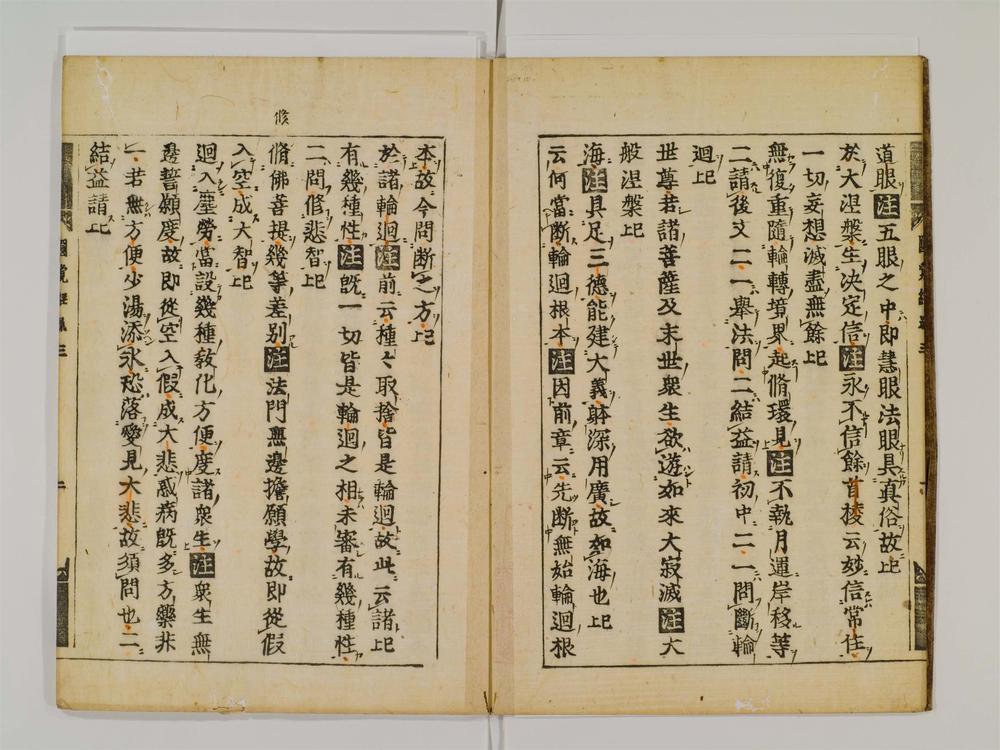 道眼注五眼之中即慧眼法眼具真俗故上已
於大涅槃生决定信注永不信餘首楞云妙信常住
一切妄想滅盡無餘上已
無復重隨輪轉境界起脩環見注不執月運岸移等
二請後文二一舉法問二結益請初中二一問斷輪
迴上已
世尊若諸菩薩及末世衆生欲遊如來大寂滅注大
般涅槃上已
海注具足三德能建大義躰深用廣故如海也上已
云何當断輪迴根本注因前章云先断無始輪迴根
修
本故今問断之方上已
於諸輪迴注前云種々取捨皆是輪迴故此云諸上已
有幾種性注既一切皆是輪迴之相未審有幾種性
二問修悲智上已
脩佛菩提幾等差别注法門無邊擔願學故即從假
入空成大智上已
迴入塵勞當設幾種教化方便度諸衆生注衆生無
邊誓願度故即從空入假成大悲惑病既多方藥非
一若無方便少湯添氷
落變見大悲故須問也二
結益請上已
圓覺經
三
二